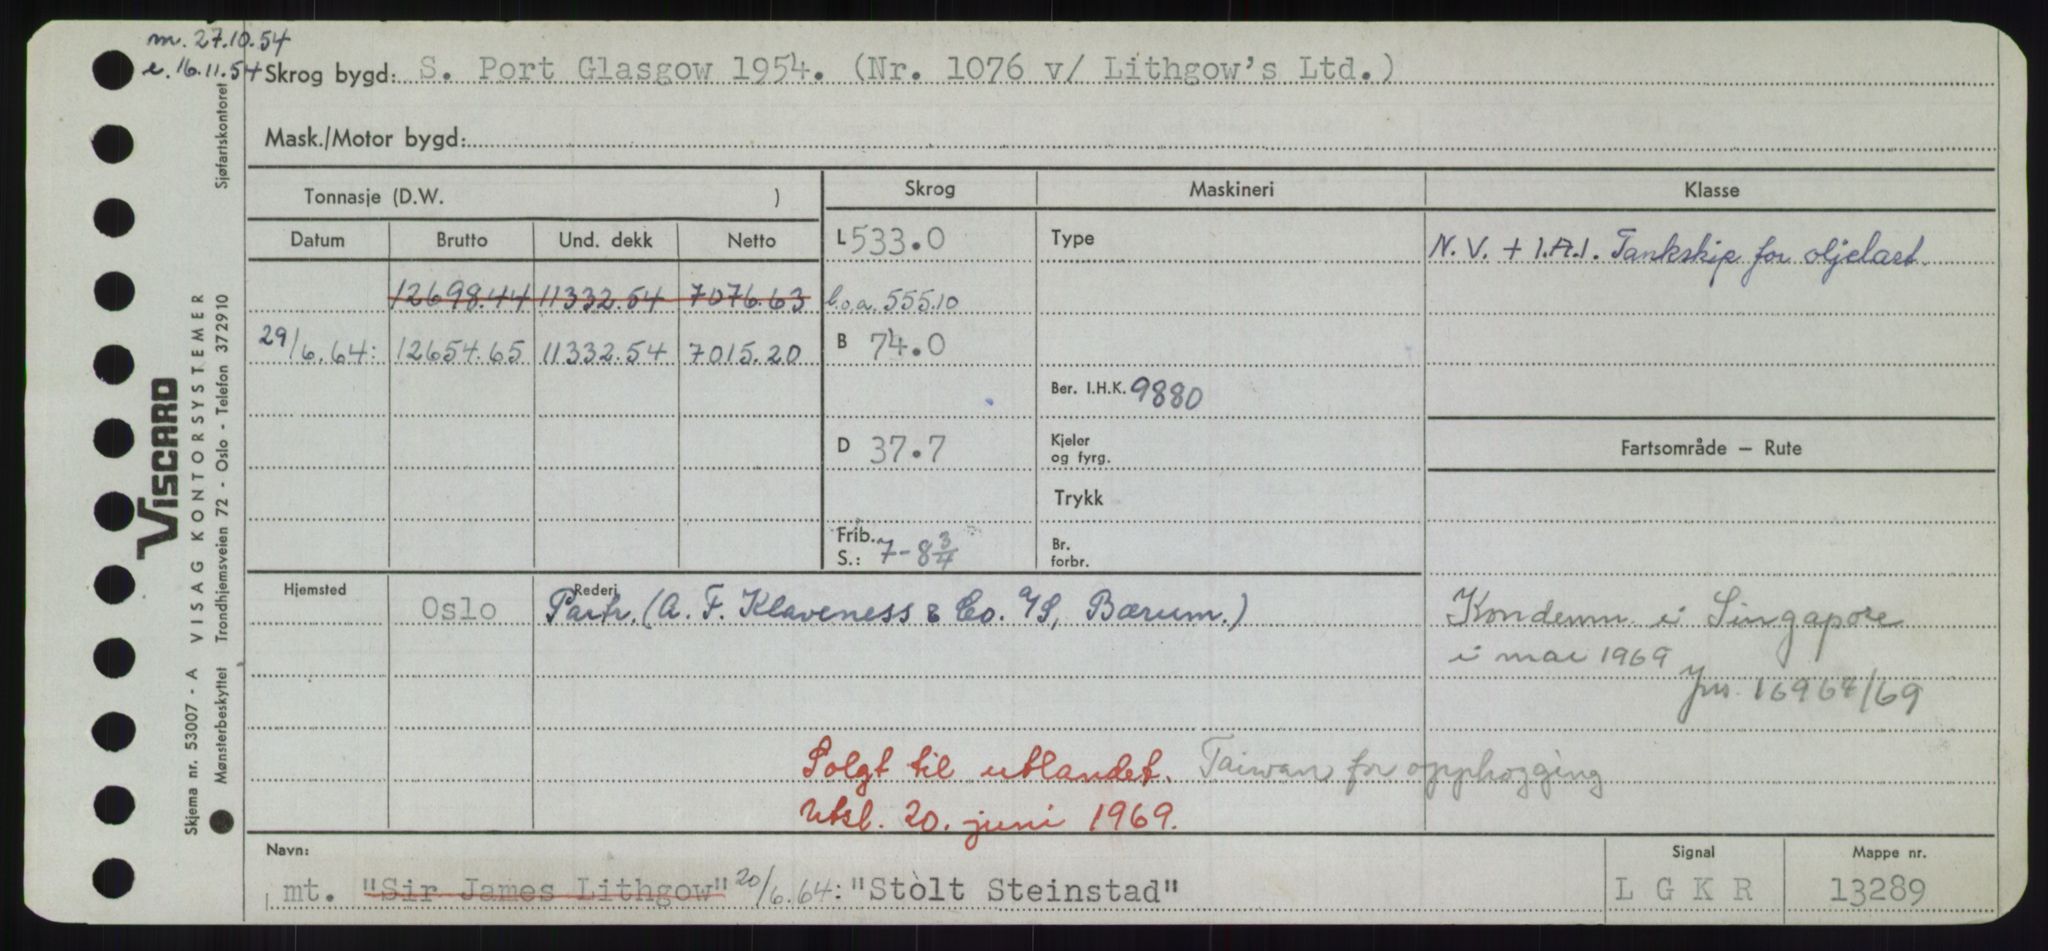 m. 27.10.54
e. 16.11.54
Skrog bygd: S. Port Glasgow 1954. (Nr. 1076 v/ Lithgow's Ltd.)
Mask./Motor bygd:
Tonnasje (D.W. )
Skrog
Maskineri
Klasse
Datum
Brutto
Und. dekk
Netto
L 533.0
Type
N. V. + 1.A.1. Tankskip for oljelast.
12698.44 11332.54 7076.63
l.o.a. 555.10
29/6.64: 12654.65 11332.54 7015.20
B 74.0
Ber. I.H.K. 9880
D 37.7
Kjeler
og fyrg.
Fartsområde – Rute
Trykk
Frib.
S.: 7-8 3/4
Br.
forbr.
Hjemsted
Oslo
Rederi
Partr. (A. F. Klaveness & Co. A/S, Bærum.)
Kondemn. i Singapore
i mai 1969
Jnr. 16964/69
Solgt til utlandet. Taiwan for opphogging
Utsl. 20. juni 1969.
Navn:
Signal
Mappe nr.
mt. "Sir James Lithgow" 20/6.64: "Stolt Steinstad"
L G K R
13289
Viscard
VISAG KONTORSYSTEMER
Sjøfartskontoret
Skjema nr. 53007 - A
Mønsterbeskyttet Trondhjemsveien 72 - Oslo - Telefon 372910